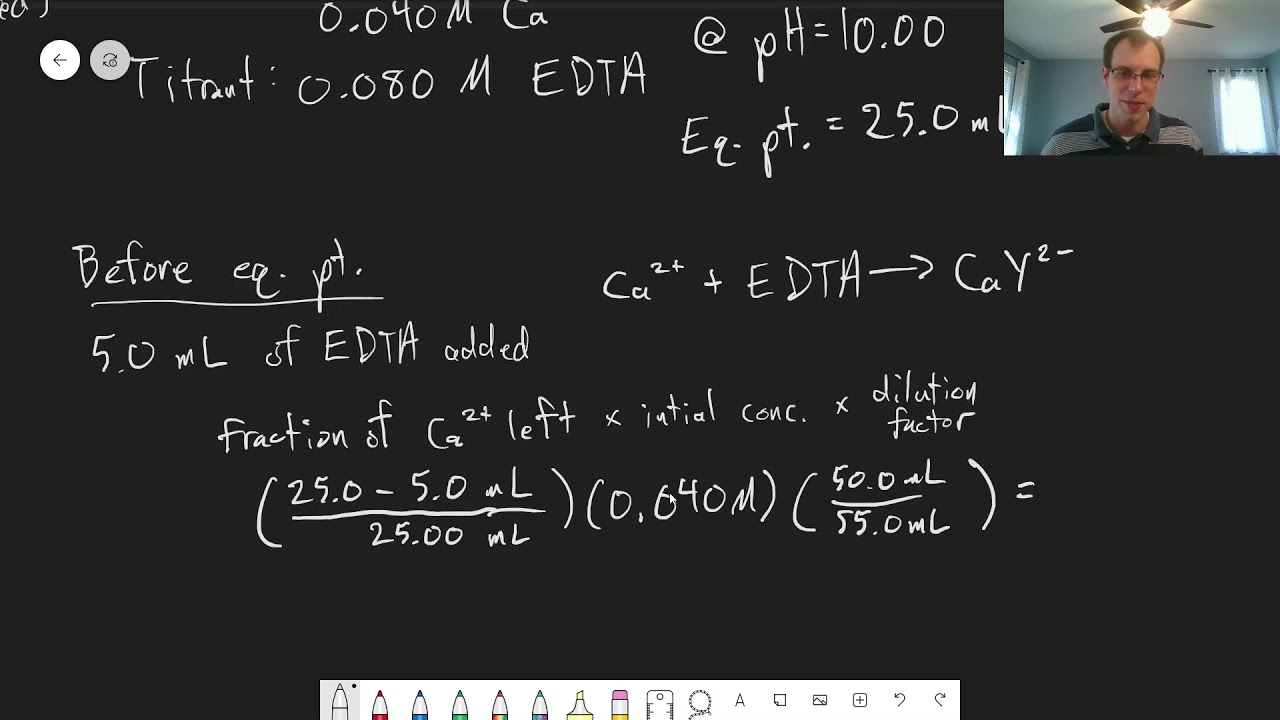 0.040 M Ca
@ pH = 10.00
Titrant: 0.080 M EDTA
Eq. pt. = 25.0 mL
Before eq. pt.
Ca²⁺ + EDTA → CaY²⁻
5.0 mL of EDTA added
fraction of Ca²⁺ left × intial conc. × dilution factor
(25.0 - 5.0 mL / 25.00 mL) (0.040 M) (50.0 mL / 55.0 mL) =
A